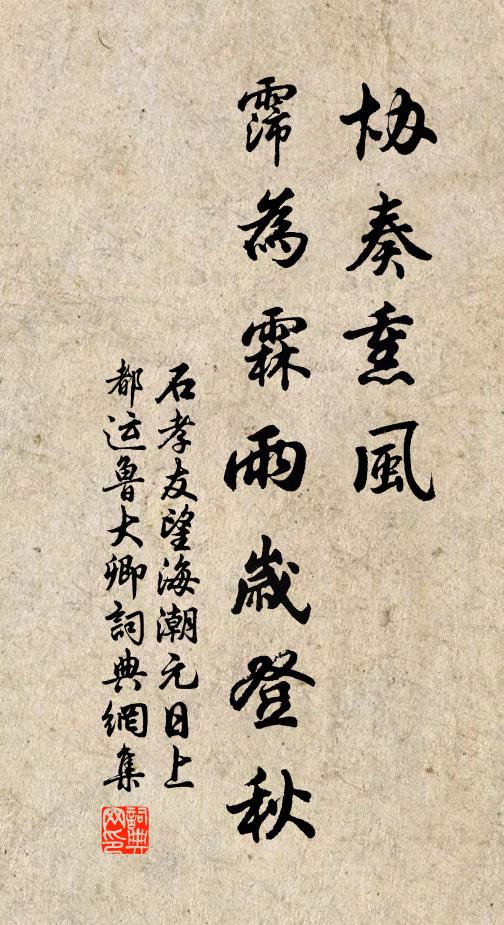 协奏熏風
霈為霖雨歲登秋
石孝友望海潮元日上
都运魯大卿詞典網集
詞典网印